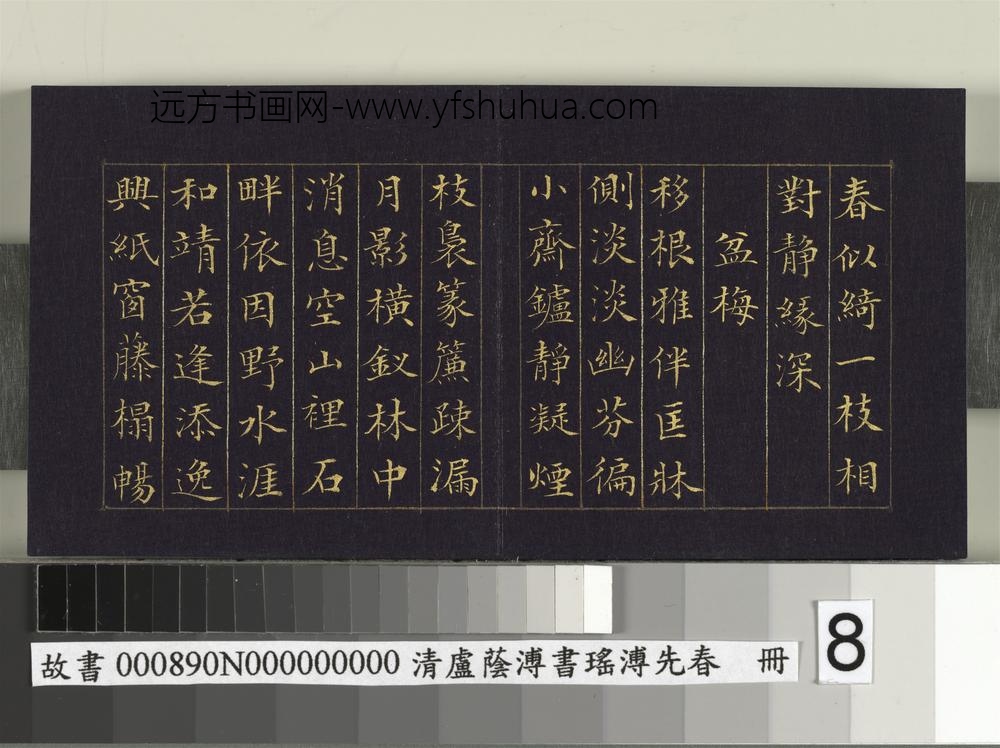 远方书画网-www.yfshuhua.com
春似綺一枝相
對静緣深
盆梅
移根雅伴匡牀
側淡淡幽芬徧
小齋鑪靜凝煙
枝裊篆簾疎漏
月影橫釵林中
消息空山裡石
畔依因野水涯
和靖若逢添逸
興紙窗藤榻暢
故書 000890N000000000 清盧蔭溥書瑤溥先春 冊
8